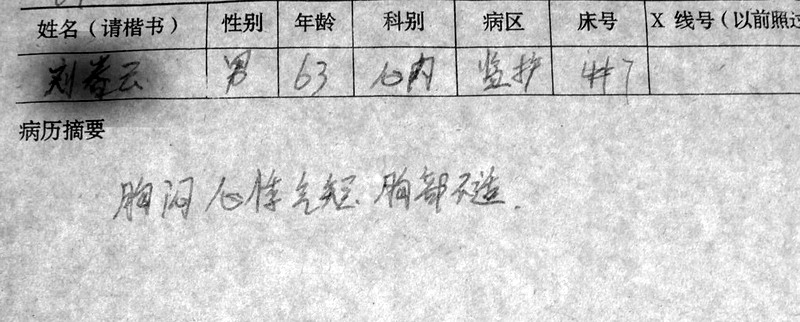 姓名（请楷书） 性别 年龄 科别 病区 床号 X 线号（以前照过
刘春云 男 63 心内 监护 4#7
病历摘要
胸闷 心悸 气短、胸部不适.